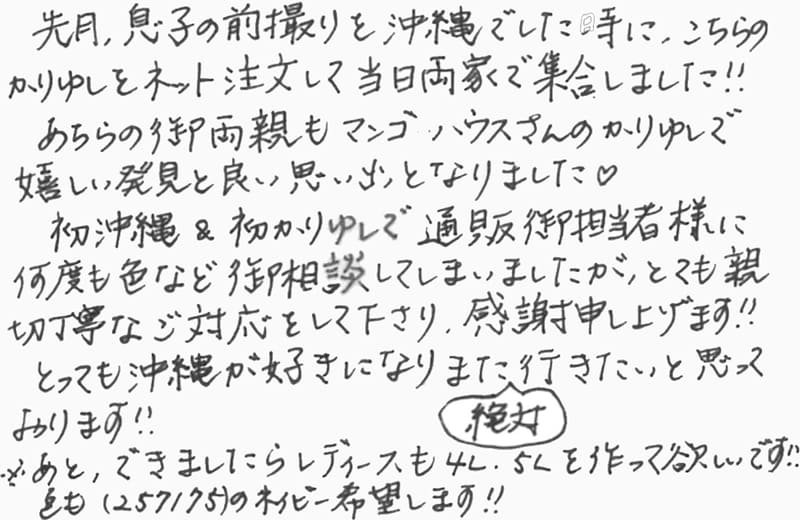 先月、息子の前撮りを沖縄でした時に、こちらの
かりゆしをネット注文して当日両家で集合しました!!
あちらの御両親もマンゴハウスさんのかりゆしで
嬉しい発見と良い思い出となりました♡
初沖縄&初かりゆしで通販御担当者様に
何度も色など御相談してしまいましたが、とても親
切丁寧なご対応をして下さり、感謝申し上げます!!
とっても沖縄が好きになりまた行きたいと思って
絶対
おります!!
※あと、できましたらレディースも4L.5Lを作って欲しいです!!
色も(257175)のネイビー希望します!!